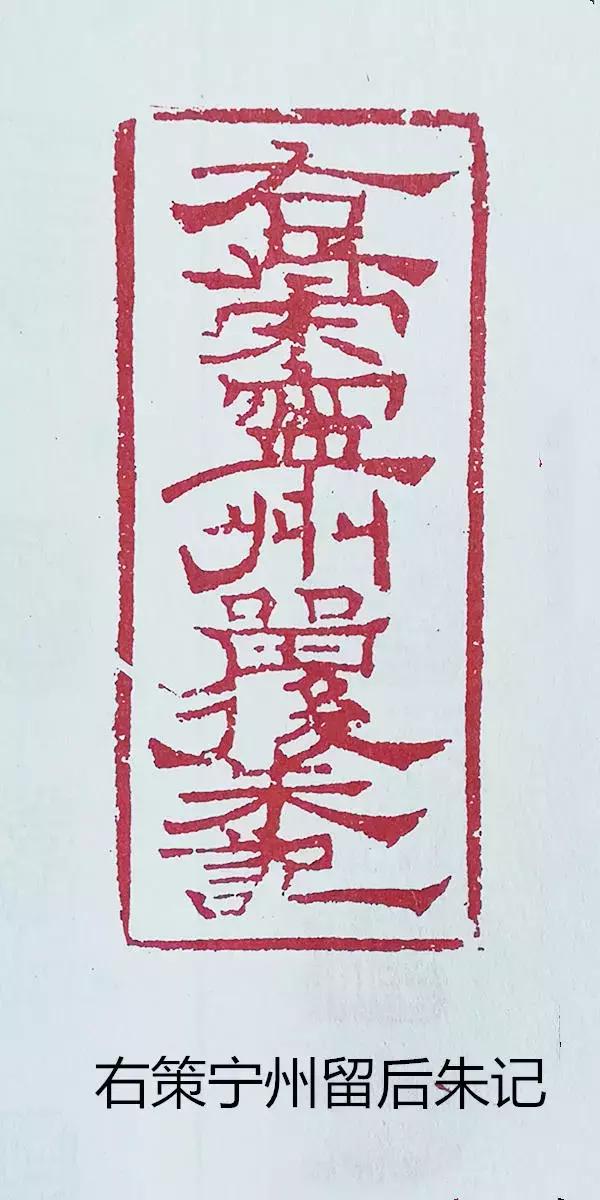 右策寧州留後朱記
右策宁州留后朱记